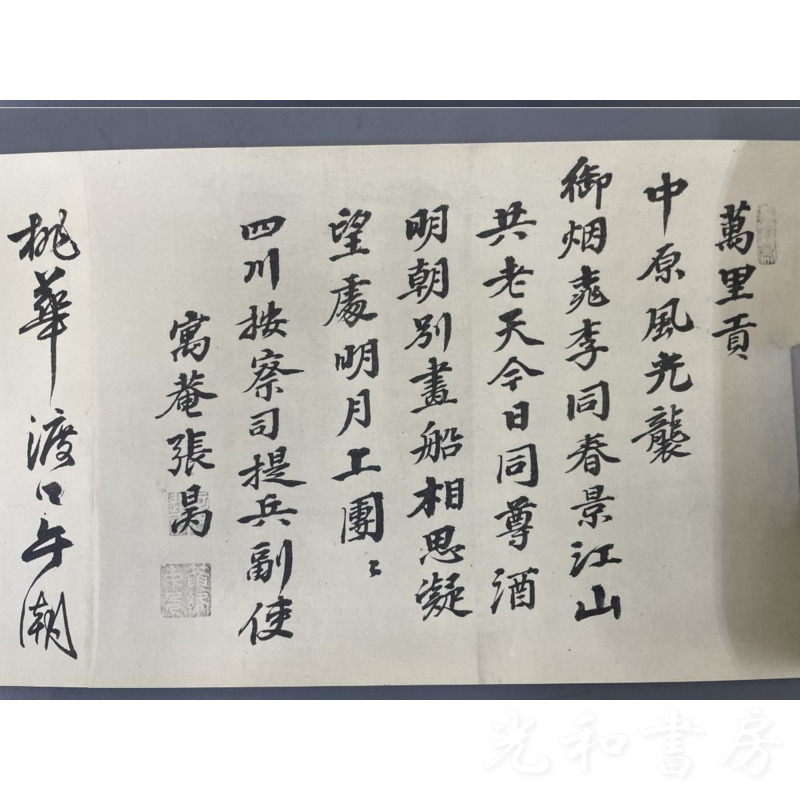 萬里貢
中原風光襲
御烟桃李同春景江山
共老天今日同尊酒
明朝別畫船相思凝
望處明月上團〻
四川按察司提兵副使
寓菴張昺
桃華渡口午潮
光和書房